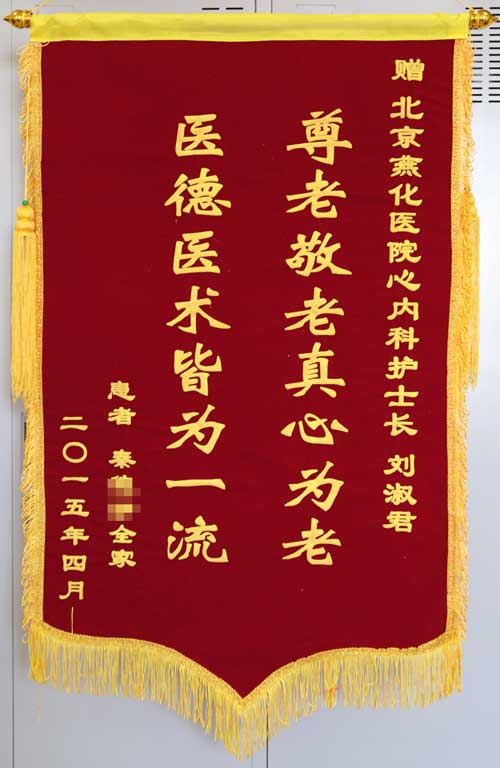 赠 北京燕化医院心内科护士长 刘淑君
尊老敬老真心为老
医德医术皆为一流
患者 秦 全家
二〇一五年四月